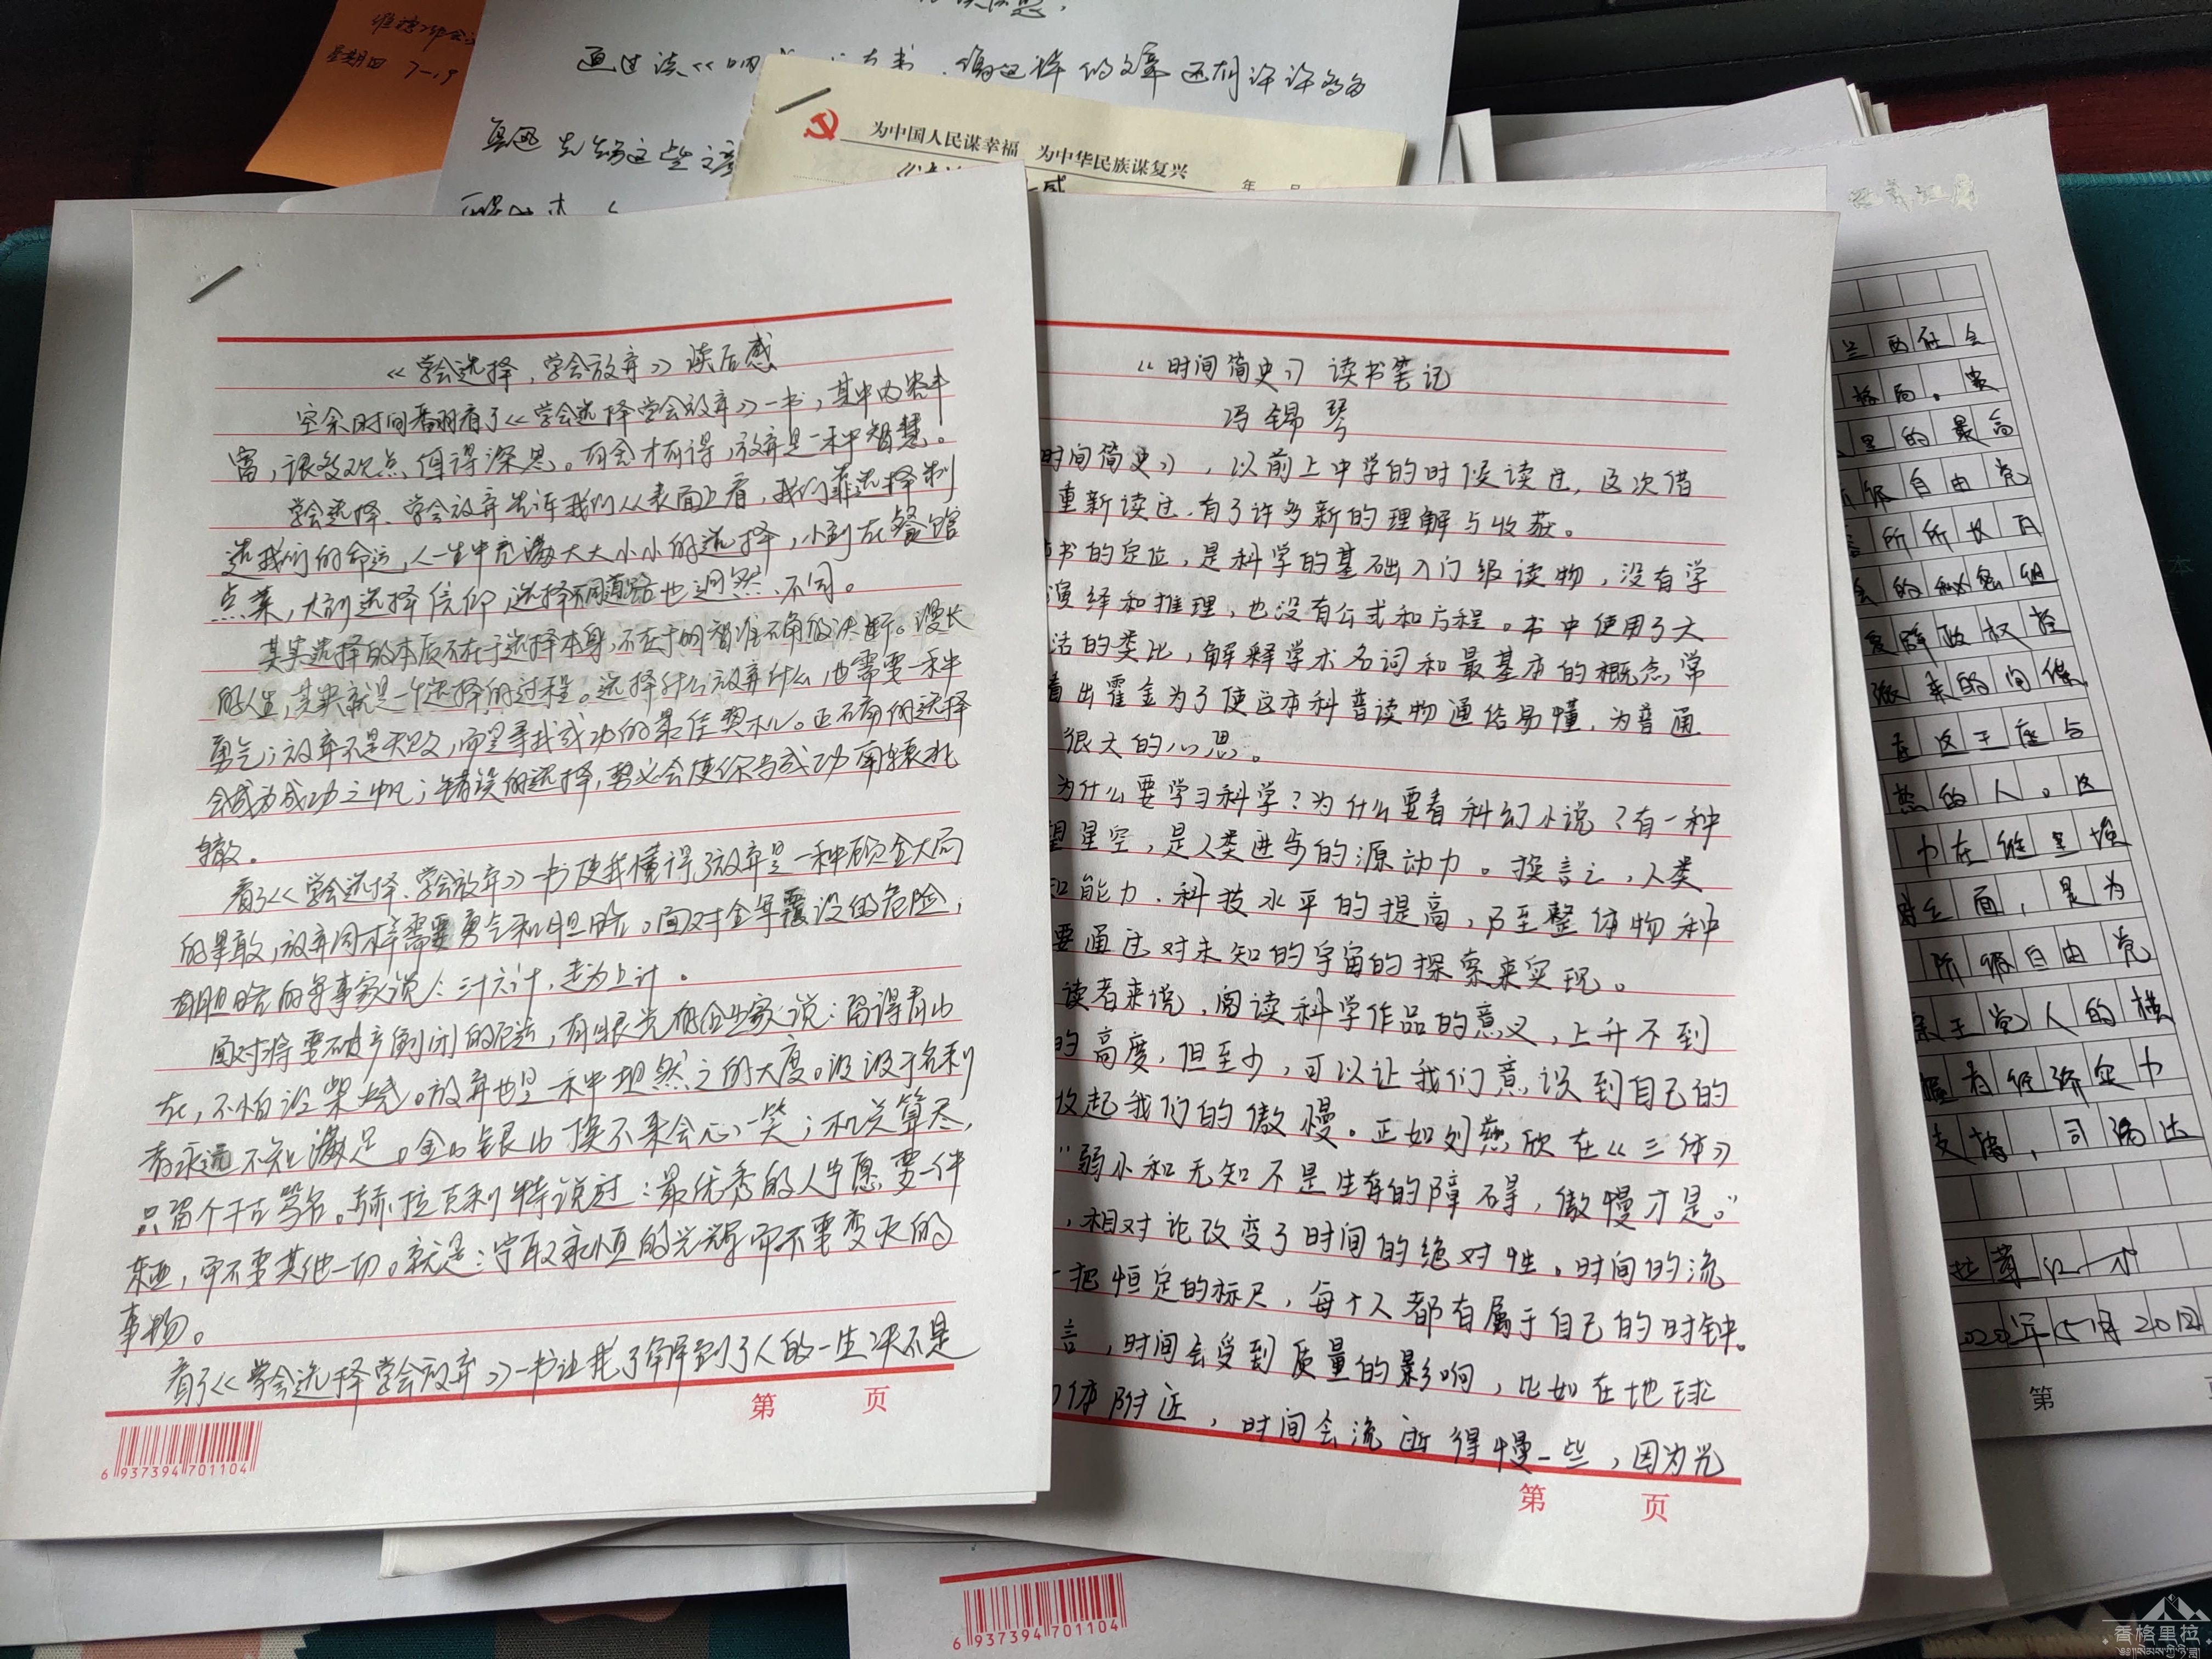 星期四 7-19
通过读《呐 书,像这样的文章还有许许多多
先生的这些文章
为中国人民谋幸福 为中华民族谋复兴
年 日
《学会选择,学会放弃》读后感
空余时间翻看了《学会选择学会放弃》一书,其中内容丰
富,很多观点值得深思。有舍才有得,放弃是一种智慧。
学会选择、学会放弃告诉我们从表面上看,我们靠选择制
造我们的命运,人一生中充满大大小小的选择,小到在餐馆
点菜,大到选择信仰,选择不同道路也迥然不同。
其实选择的本质不在于选择本身,不在于明智准确的决断。漫长
的人生,其实就是一个选择的过程。选择什么放弃什么也需要一种
勇气;放弃不是失败,而是寻找成功的最佳契机。正确的选择
会成为成功之帆;错误的选择,势必会使你与成功南辕北
辙。
看了《学会选择、学会放弃》一书使我懂得了放弃是一种顾全大局
的果敢,放弃同样需要勇气和胆略。面对全军覆没的危险,
有胆略的军事家说:三十六计,走为上计。
面对将要破产倒闭的厄运,有眼光的企业家说:留得青山
在,不怕没柴烧。放弃也是一种坦然之的大度。汲汲于名利
者永远不知满足。金山银山换不来会心一笑;机关算尽,
只留个千古骂名。赫拉克利特说过:最优秀的人宁愿要一件
东西,而不要其他一切。就是:宁取永恒的光辉而不要变灭的
事物。
看了《学会选择学会放弃》一书让我了解到了人的一生决不是
第 页
6 937394 701104
《时间简史》读书笔记
冯锦琴
时间简史》,以前上中学的时候读过,这次借
重新读过,有了许多新的理解与收获。
书的定位,是科学的基础入门级读物,没有学
演绎和推理,也没有公式和方程。书中使用了大
活的类比,解释学术名词和最基本的概念,常
看出霍金为了使这本科普读物通俗易懂,为普通
很大的心思。
为什么要学习科学?为什么要看科幻小说?有一种
望星空,是人类进步的源动力。换言之,人类
知能力、科技水平的提高,乃至整体物种
要通过对未知的宇宙的探索来实现。
读者来说,阅读科学作品的意义,上升不到
的高度,但至少,可以让我们意识到自己的
收起我们的傲慢。正如刘慈欣在《三体》
“弱小和无知不是生存的障碍,傲慢才是。”
,相对论改变了时间的绝对性。时间的流
一把恒定的标尺,每个人都有属于自己的时钟。
言,时间会受到质量的影响,比如在地球
体附近,时间会流逝得慢一些,因为光
第 页
6 937394 701104
兰西社会
格局。贵
里的最高
级自由党
所所长西
的秘密组
复辟政权
派来的间谍。
在这王座与
的人。这
力在维里埃
对立面,是为
阶级自由党
保王党人的横
握有经济实力
支持,司汤达
2022年5月20日
第 页
香格里拉